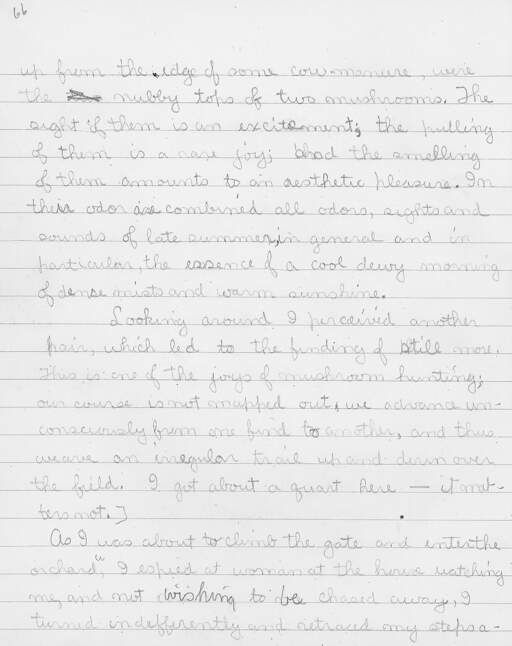 66
up from the edge of some cow-manure, were
the nubby tops of two mushrooms. The
sight of them is an excitement; the pulling
of them is a rare joy; and the smelling
of them amounts to an aesthetic pleasure. In
their odor are combined all odors, sights and
sounds of late summer, in general and in
particular, the essence of a cool dewy morning
of dense mists and warm sunshine.
Looking around I perceived another
pair, which led to the finding of still more.
This is one of the joys of mushroom hunting;
our course is not mapped out, we advance un-
consciously from one find to another, and thus
weave an irregular trail up and down over
the field. I got about a quart here — it mat-
ters not.]
As I was about to climb the gate and enter the
orchard, I espied at woman at the house watching
me, and not wishing to be chased away, I
turned indifferently and retraced my steps a-